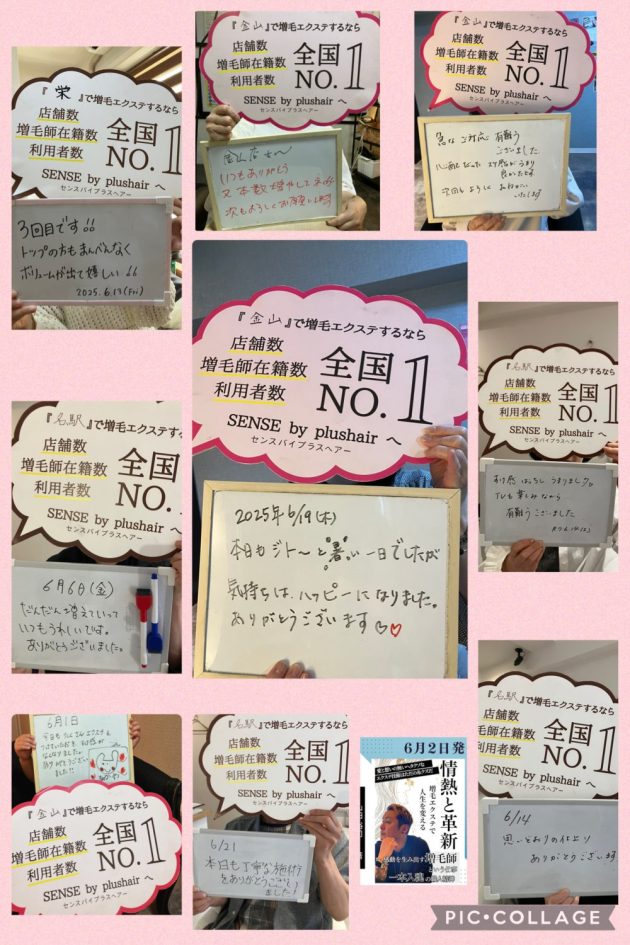 『栄』で増毛エクステするなら
店舗数
増毛師在籍数
利用者数
全国
NO.1
SENSE by plushair へ
センスバイプラスヘアー
3回目です!!
トップの方もまんべんなく
ボリュームが出て嬉しい
2025.6.13(Fri)
『金山』で増毛エクステするなら
店舗数
増毛師在籍数
利用者数
全国
NO.1
SENSE by plushair へ
センスバイプラスヘアー
いつもありがとう
又本数増やして
次もよろしくお願いします
『金山』で増毛エクステするなら
店舗数
増毛師在籍数
利用者数
全国
NO.1
SENSE by plushair へ
センスバイプラスヘアー
急なご対応 有難う
ございました
心配だった
良かったです
次回もよろしくお ねがい
いたします
『金山』で増毛エクステするなら
店舗数
増毛師在籍数
利用者数
全国
NO.1
SENSE by plushair へ
センスバイプラスヘアー
2025年6/19(木)
本日もジト〜と暑い一日でしたが
気持ちは、ハッピーになりました。
ありがとうございます♡♥
『名駅』で増毛エクステするなら
店舗数
増毛師在籍数
利用者数
全国
NO.1
SENSE by plushair へ
センスバイプラスヘアー
6月6日(金)
だんだん増えていって
いつもうれしいです。
ありがとうございました。
『名駅』で増毛エクステするなら
店舗数
増毛師在籍数
利用者数
全国
NO.1
SENSE by plushair へ
センスバイプラスヘアー
有難うございました
6月1日
『金山』で増毛エクステするなら
店舗数
増毛師在籍数
利用者数
全国
NO.1
SENSE by plushair へ
センスバイプラスヘアー
『名駅』で増毛エクステするなら
店舗数
増毛師在籍数
利用者数
全国
NO.1
SENSE by plushair へ
センスバイプラスヘアー
6/21
本日も丁寧な施術
をありがとうござい
ました!
6月2日発
情熱と革新
増毛エクステで
人生を変える
感動を生み出す増毛師
という仕事
一本入魂の職人精神
『名駅』で増毛エクステするなら
店舗数
増毛師在籍数
利用者数
全国
NO.1
SENSE by plushair へ
センスバイプラスヘアー
6/14
思いどおりの仕上り
ありがとうございます
PIC•COLLAGE